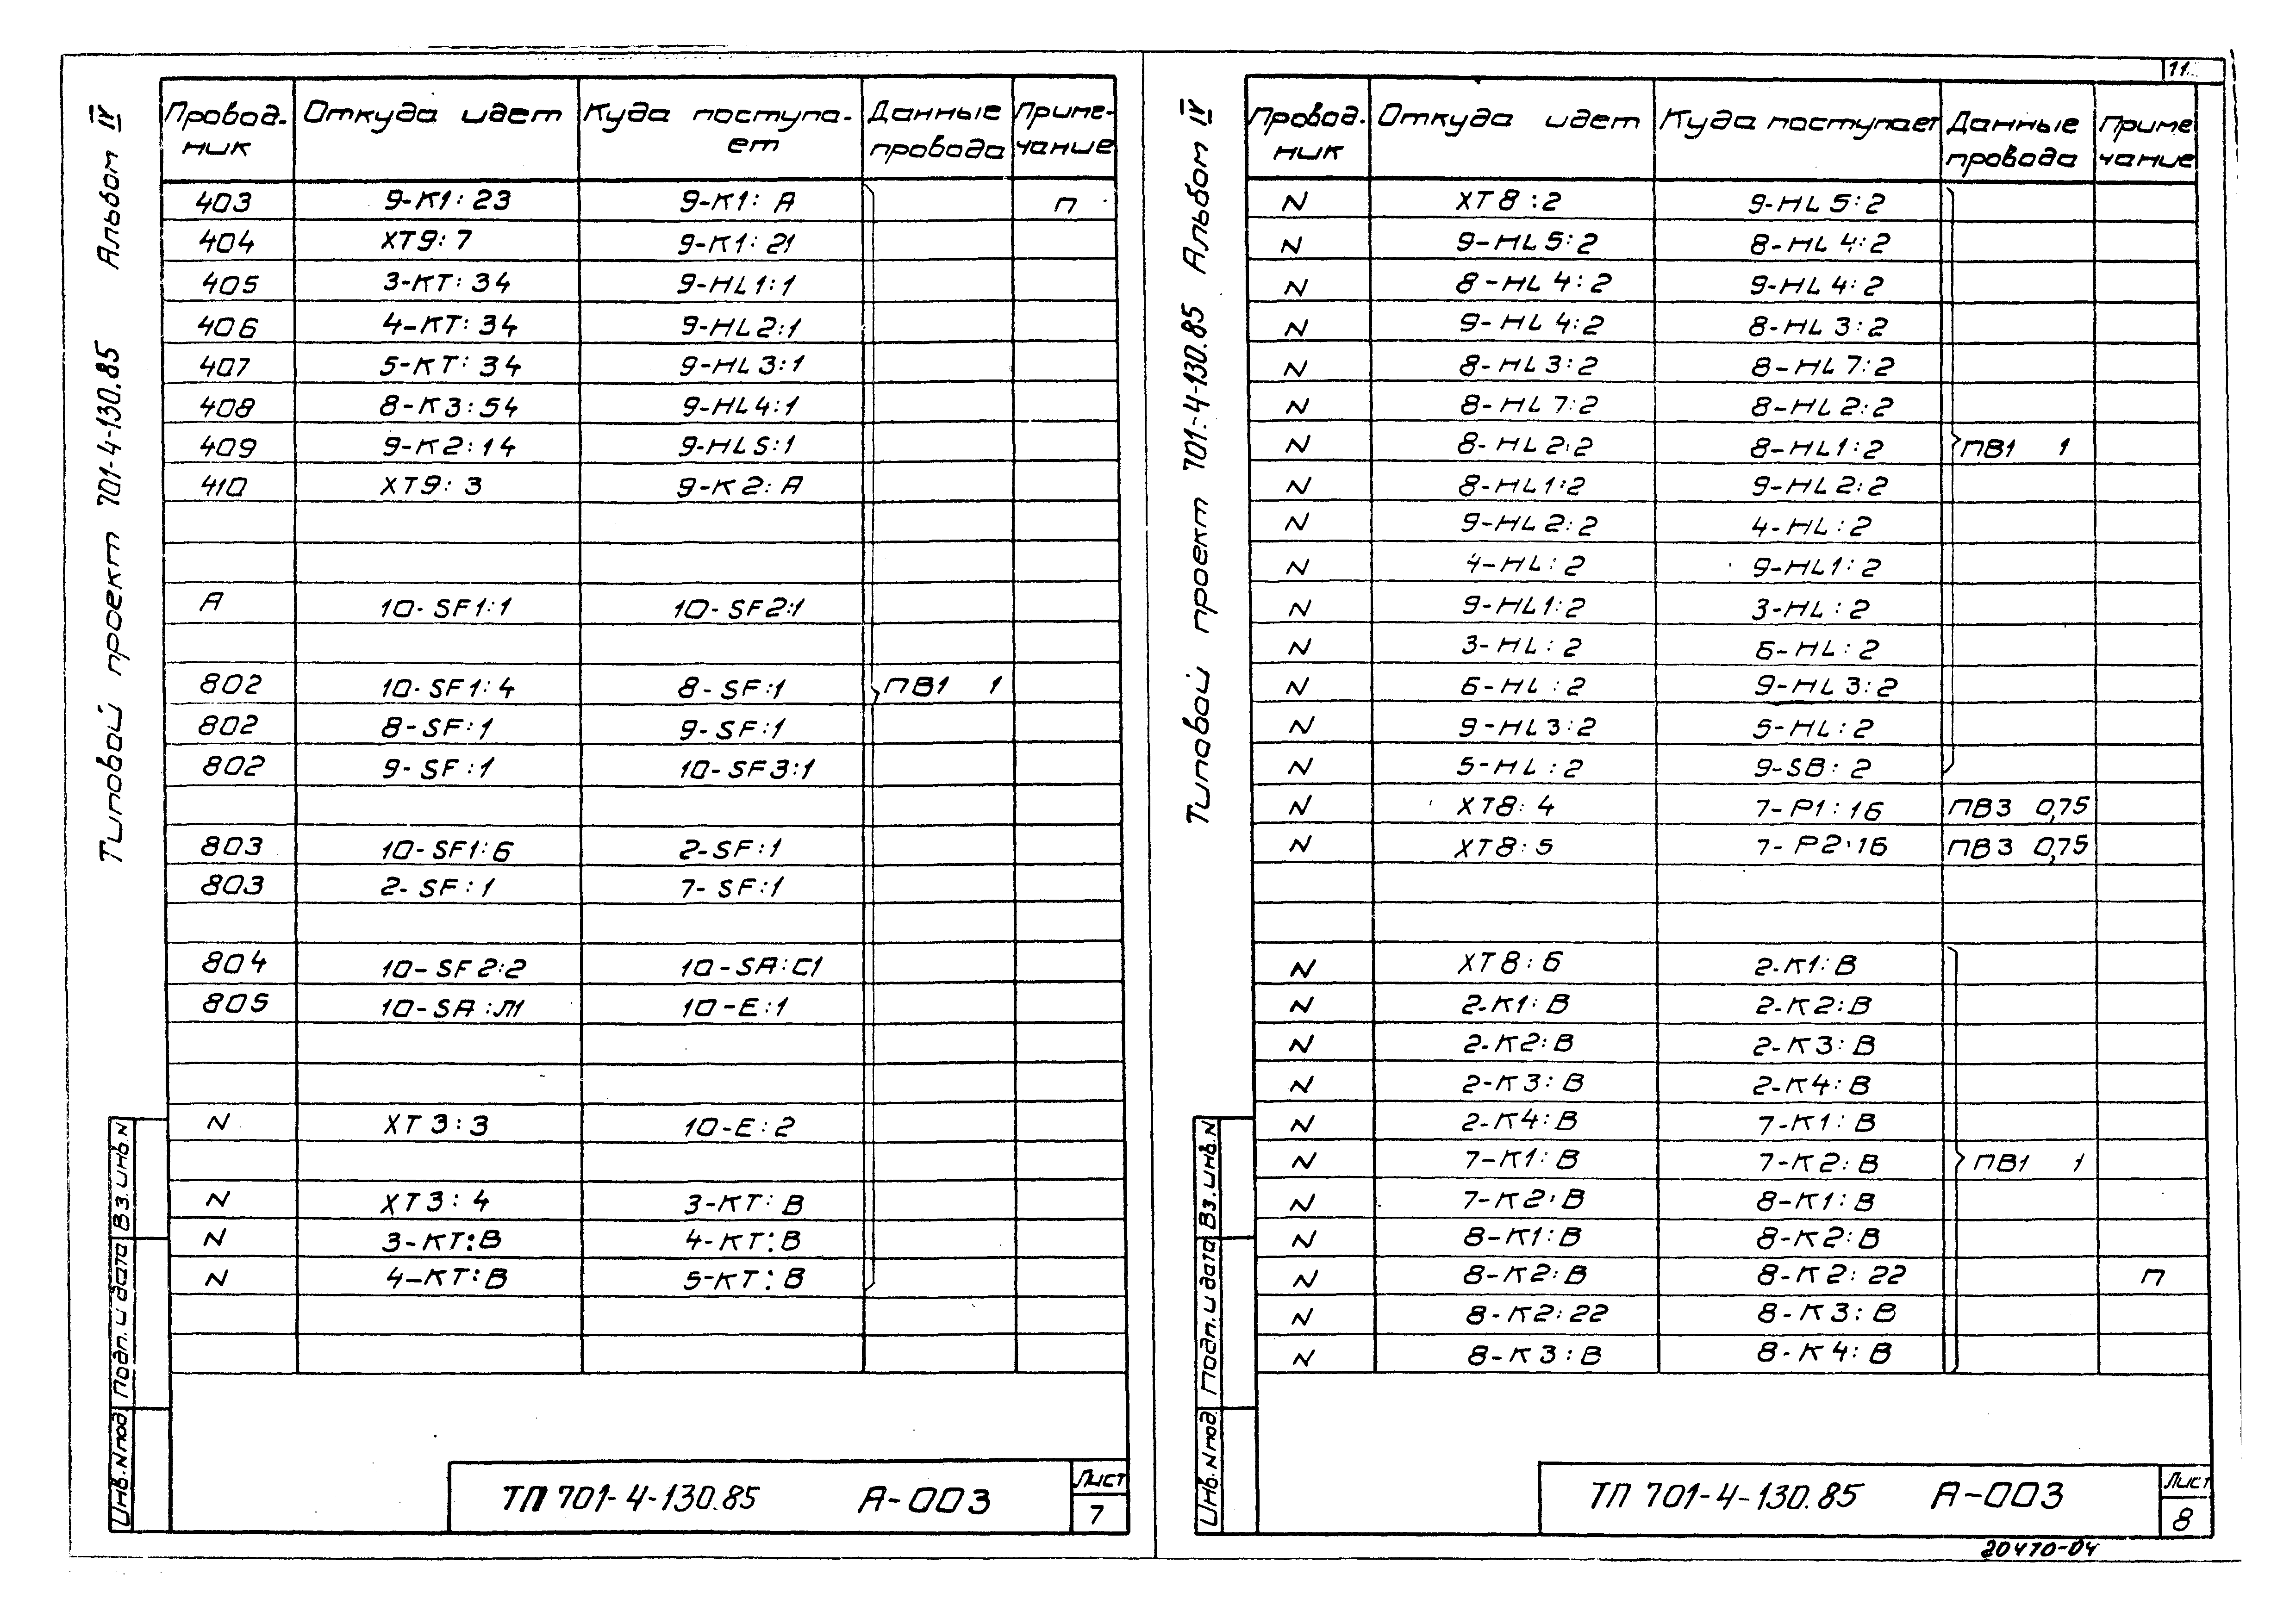 Типовой проект 701-4-130.85 Альбом IV
Провод- Откуда идет Куда поступа- Данные Приме-
ник ет провода чание
403 9-К1:23 9-К1:А П
404 ХТ9:7 9-К1:21
405 3-КТ:34 9-HL1:1
406 4-КТ:34 9-HL2:1
407 5-КТ:34 9-HL3:1
408 8-К3:54 9-HL4:1
409 9-К2:14 9-HL5:1
410 ХТ9:3 9-К2:А
А 10-SF1:1 10-SF2:1
802 10-SF1:4 8-SF:1 ПВ1 1
802 8-SF:1 9-SF:1
802 9-SF:1 10-SF3:1
803 10-SF1:6 2-SF:1
803 2-SF:1 7-SF:1
804 10-SF2:2 10-SA:C1
805 10-SA:Л1 10-Е:1
N ХТ3:3 10-Е:2
N ХТ3:4 3-КТ:В
N 3-КТ:В 4-КТ:В
N 4-КТ:В 5-КТ:В
Инв.Nпод. Подп.и дата Вз.инв.N
ТП 701-4-130.85 А-003
Лист
7
11
Типовой проект 701-4-130.85 Альбом IV
Провод- Откуда идет Куда поступает Данные Приме
ник провода чание
N ХТ8:2 9-HL5:2
N 9-HL5:2 8-HL4:2
N 8-HL4:2 9-HL4:2
N 9-HL4:2 8-HL3:2
N 8-HL3:2 8-HL7:2
N 8-HL7:2 8-HL2:2
N 8-HL2:2 8-HL1:2 ПВ1 1
N 8-HL1:2 9-HL2:2
N 9-HL2:2 4-HL:2
N 4-HL:2 9-HL1:2
N 9-HL1:2 3-HL:2
N 3-HL:2 6-HL:2
N 6-HL:2 9-HL3:2
N 9-HL3:2 5-HL:2
N 5-HL:2 9-SB:2
N ХТ8:4 7-Р1:16 ПВ3 0,75
N ХТ8:5 7-Р2:16 ПВ3 0,75
N ХТ8:6 2-К1:В
N 2-К1:В 2-К2:В
N 2-К2:В 2-К3:В
N 2-К3:В 2-К4:В
N 2-К4:В 7-К1:В
N 7-К1:В 7-К2:В ПВ1 1
N 7-К2:В 8-К1:В
N 8-К1:В 8-К2:В
N 8-К2:В 8-К2:22 П
N 8-К2:22 8-К3:В
N 8-К3:В 8-К4:В
Инв.Nпод. Подп.и дата Вз.инв.N
ТП 701-4-130.85 А-003
Лист
8
20470-04